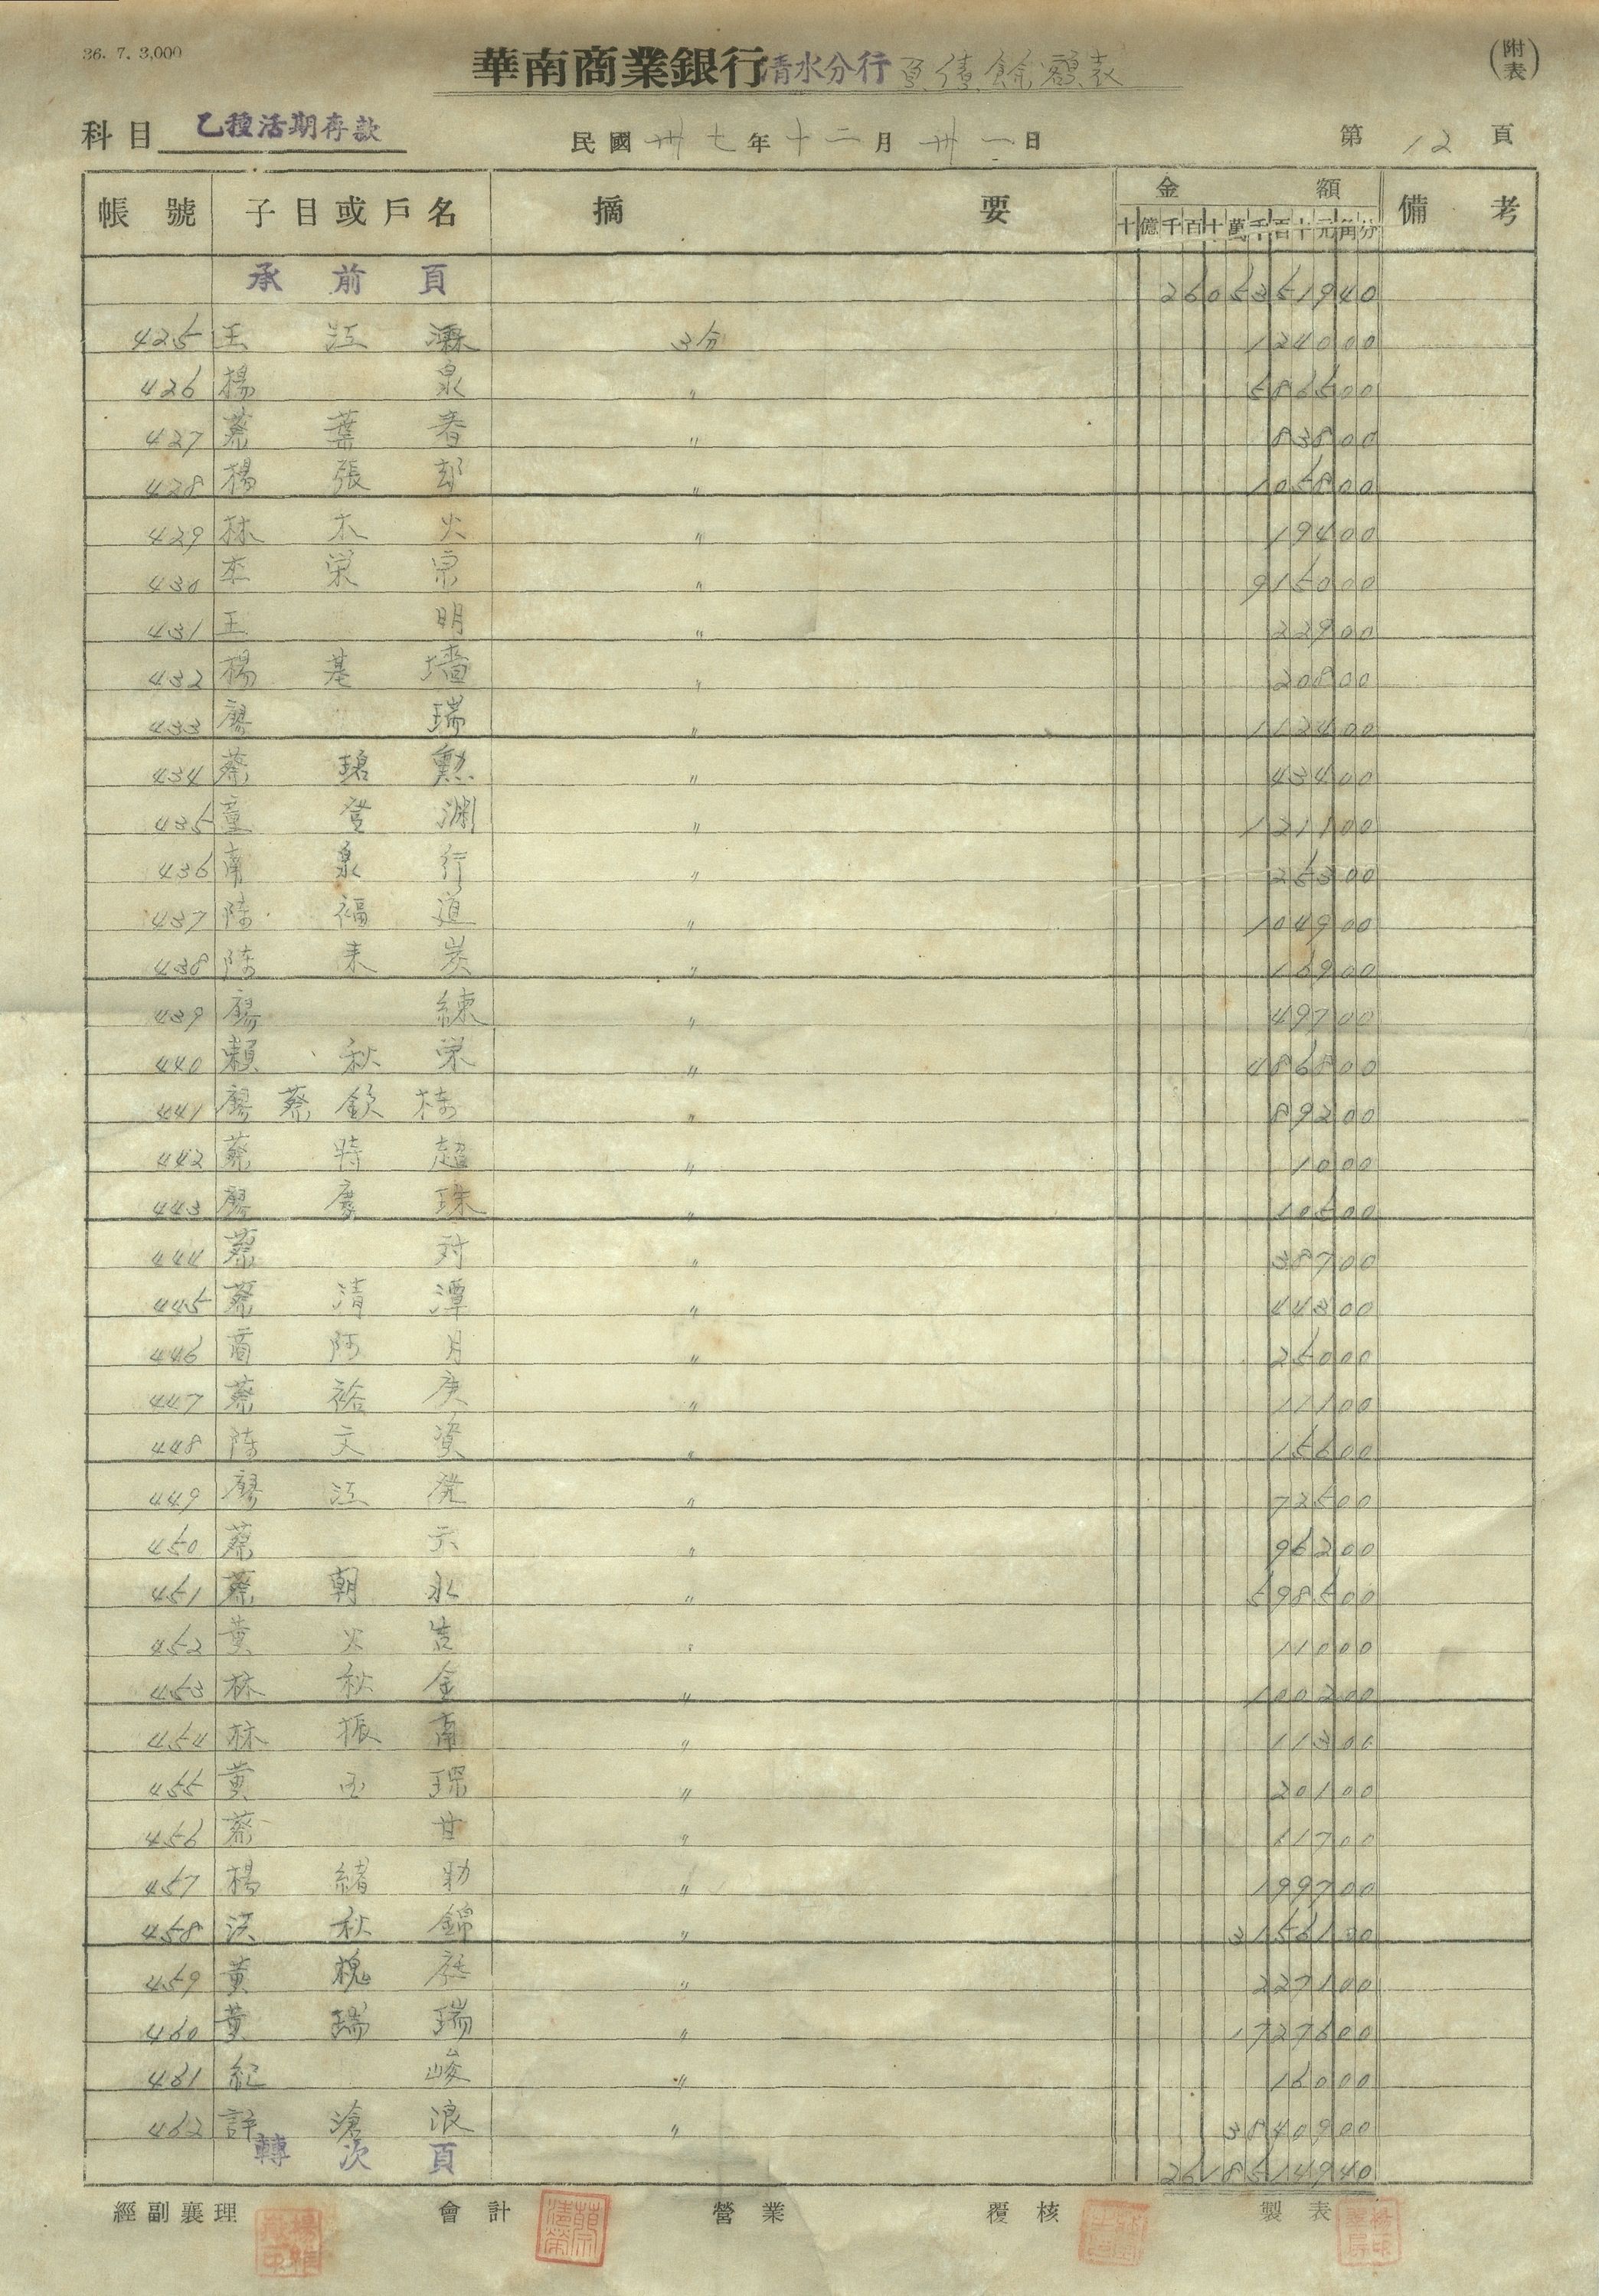 36. 7. 3,000
華南商業銀行清水分行負債餘額表
(附表)
科目 乙種活期存款 民國卅七年十二月卅一日 第12頁
帳號 子目或戶名 摘要 金額 備考
十億千百十萬千百十元角分
承前頁 2605351940
425 王江 3分 124000
426 楊泉 〃 586500
427 蔡葉香 〃 83800
428 楊張 〃 105800
429 林木火 〃 19400
430 李栄宗 〃 915000
431 王明 〃 22900
432 楊基墻 〃 20800
433 廖瑞 〃 112400
434 蔡珺勲 〃 43400
435 童登渊 〃 121100
436 南泉行 〃 25300
437 陳福道 〃 104900
438 陳来炭 〃 16900
439 廖練 〃 49700
440 賴秋栄 〃 486800
441 廖蔡欽 〃 89200
442 蔡特超 〃 1000
443 廖慶珠 〃 10500
444 蔡対 〃 38700
445 蔡清潭 〃 44300
446 商阿月 〃 25000
447 蔡裕庚 〃 11100
448 陳文資 〃 15600
449 廖江發 〃 72500
450 蔡天 〃 96200
451 蔡朝永 〃 598500
452 黄火吉 〃 11000
453 林秋金 〃 100200
454 林振南 〃 11300
455 黄玉琛 〃 20100
456 蔡甘 〃 11700
457 楊緒勅 〃 199700
458 洪秋錦 〃 3156100
459 黄槐庭 〃 227100
460 黄瑞瑞 〃 1727600
461 紀峻 〃 16000
462 許滄浪 〃 3840900
轉次頁 2618514940
經副襄理 會計 營業 覆核 製表